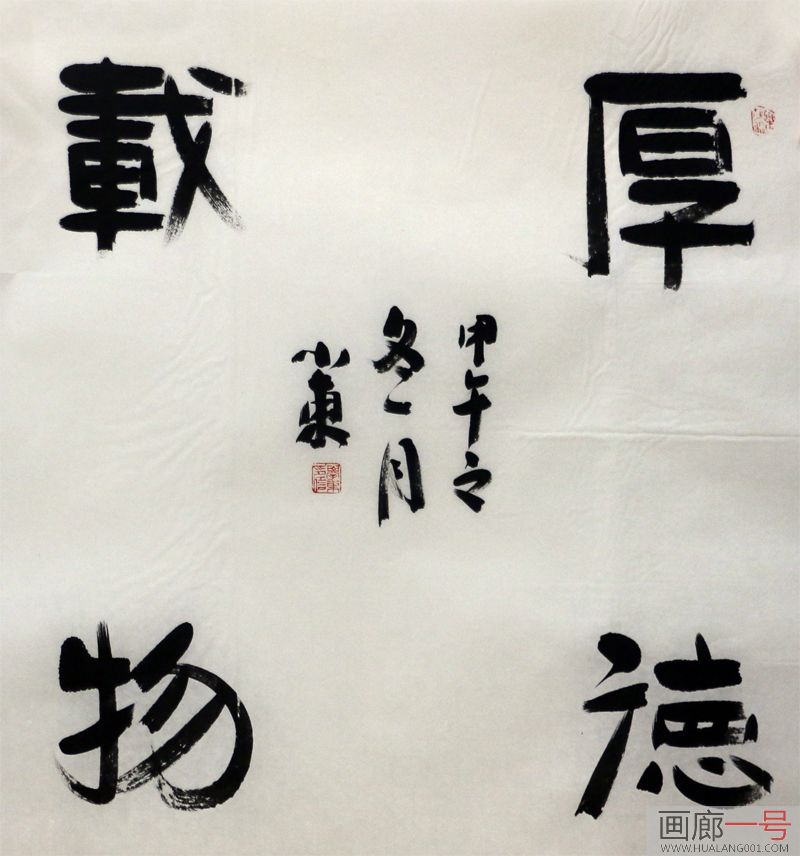 厚德
載物
甲午之
冬月
小東
画廊一号
WWW.HUALANG001.COM